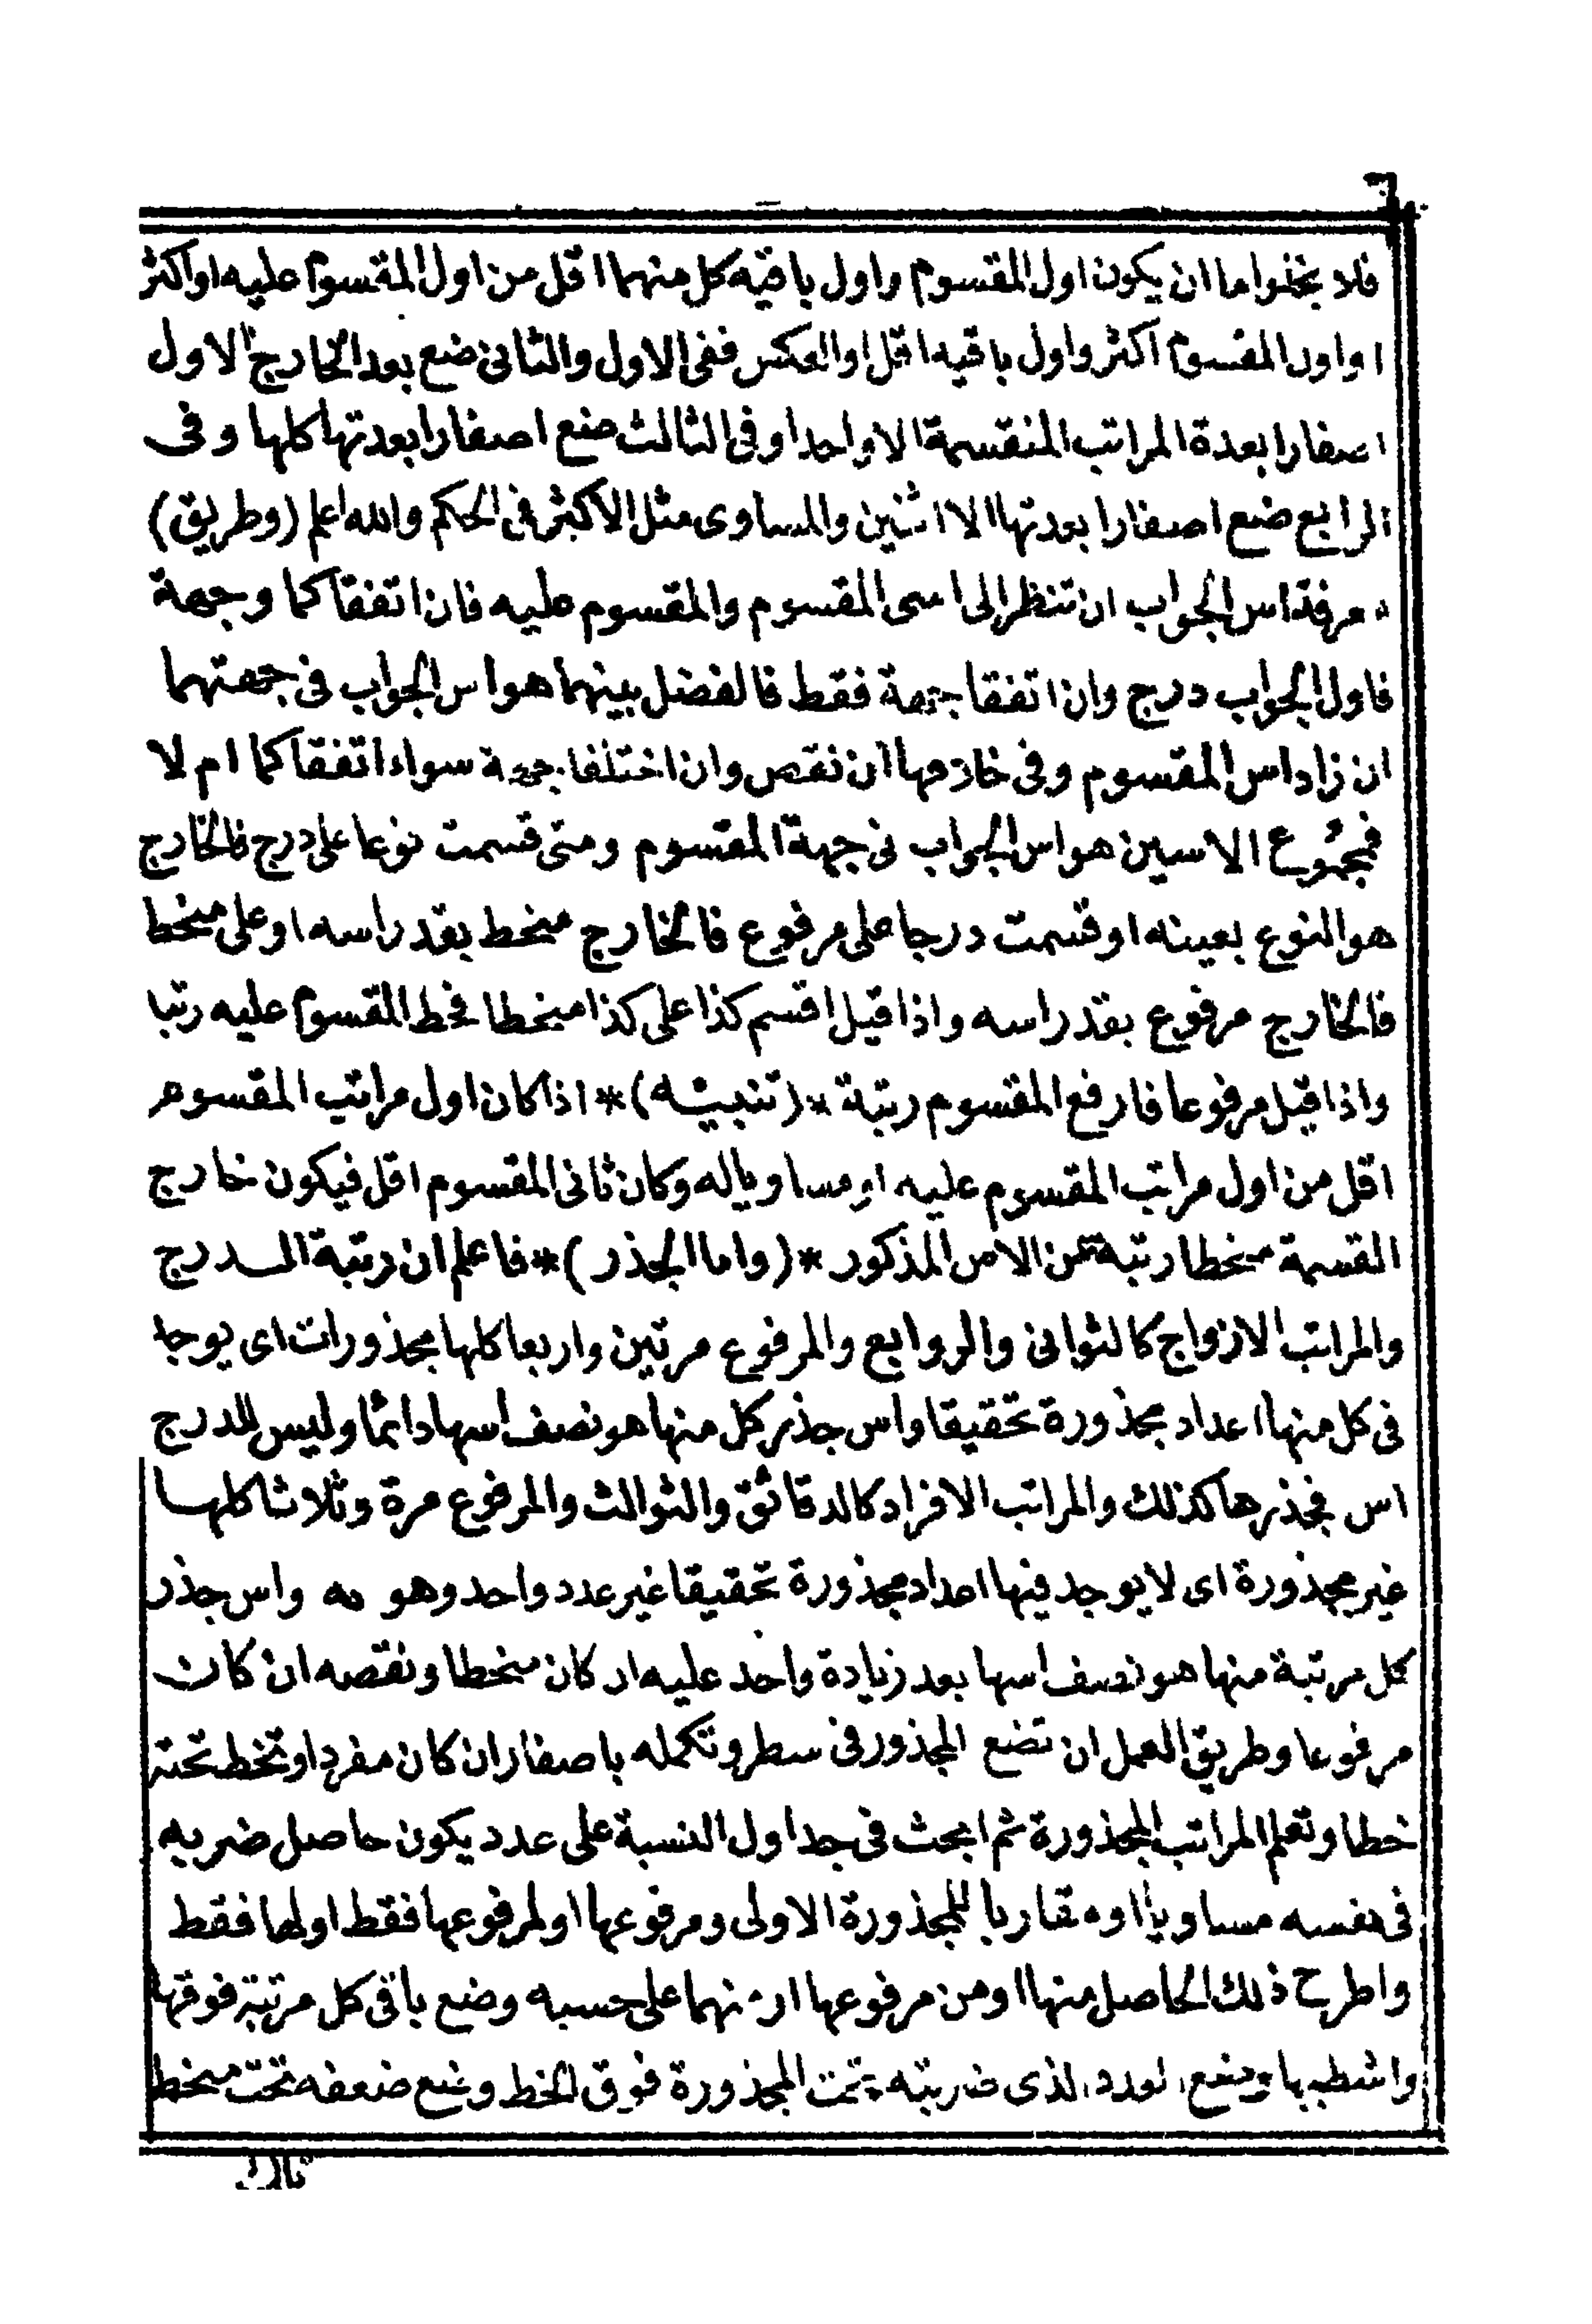 ٦
فلا يخلوا ما ان يكون اول المقسوم واول باقيه كل منهما اقل من اول المقسوم عليه او اكثر
او اول المقسوم اكثر واول باقيه اقل او العكس ففى الاول والثانى ضع بعد الخارج الاول
اصفارا بعدة المراتب المنقسمة الا واحدا وفى الثالث ضع اصفارا بعدتها كلها وفى
الرابع ضع اصفارا بعدتها الا اثنين والمساوى مثل الاكثر فى الحكم والله اعلم (وطريق)
معرفة اس الجواب ان تنظر الى اسى المقسوم والمقسوم عليه فان اتفقا كما وجهة
فاول الجواب درج وان اتفقا جهة فقط فالفضل بينهما هو اس الجواب فى جهتهما
ان زاد اس المقسوم وفى خلافها ان نقص وان اختلفا جهة سواء اتفقا كما ام لا
فمجموع الاسين هو اس الجواب فى جهة المقسوم ومتى قسمت نوعا على درج فالخارج
هو النوع بعينه او قسمت درجا على مرفوع فالخارج منحط بقدر اسه او على منحط
فالخارج مرفوع بقدر اسه واذا قيل اقسم كذا على كذا منحطا فحط المقسوم عليه رتبا
واذا قيل مرفوعا فارفع المقسوم رتبة *(تنبيه)* اذا كان اول مراتب المقسوم
اقل من اول مراتب المقسوم عليه او مساويا له وكان ثانى المقسوم اقل فيكون خارج
القسمة منحطا رتبة عن الاس المذكور *(واما الجذر)* فاعلم ان رتبة الـدرج
والمراتب الازواج كالثوانى والروابع والمرفوع مرتين واربعا كلها مجذورات اى يوجد
فى كل منها اعداد مجذورة تحقيقا واس جذر كل منها هو نصف اسها دائما وليس للدرج
اس فجذرها كذلك والمراتب الافراد كالدقائق والثوالث والمرفوع مرة وثلاثا كلها
غير مجذورة اى لا يوجد فيها اعداد مجذورة تحقيقا غير عدد واحد وهو مه واس جذر
كل مرتبة منها هو نصف اسها بعد زيادة واحد عليه ان كان منحطا ونقصه ان كان
مرفوعا وطريق العمل ان تضع المجذور فى سطر وتكمله باصفار ان كان مفردا وتخط تحته
خطا وتعلم المراتب المجذورة ثم ابحث فى جداول النسبة على عدد يكون حاصل ضربه
فى نفسه مساويا او مقاربا للمجذورة الاولى ومرفوعها او لمرفوعها فقط او لها فقط
واطرح ذلك الحاصل منها او من مرفوعها او منهما على حسبه وضع باقى كل مرتبة فوقها
واشطبها وضع العدد الذى ضربته تحت المجذورة فوق الخط وضع ضعفه تحت منحط